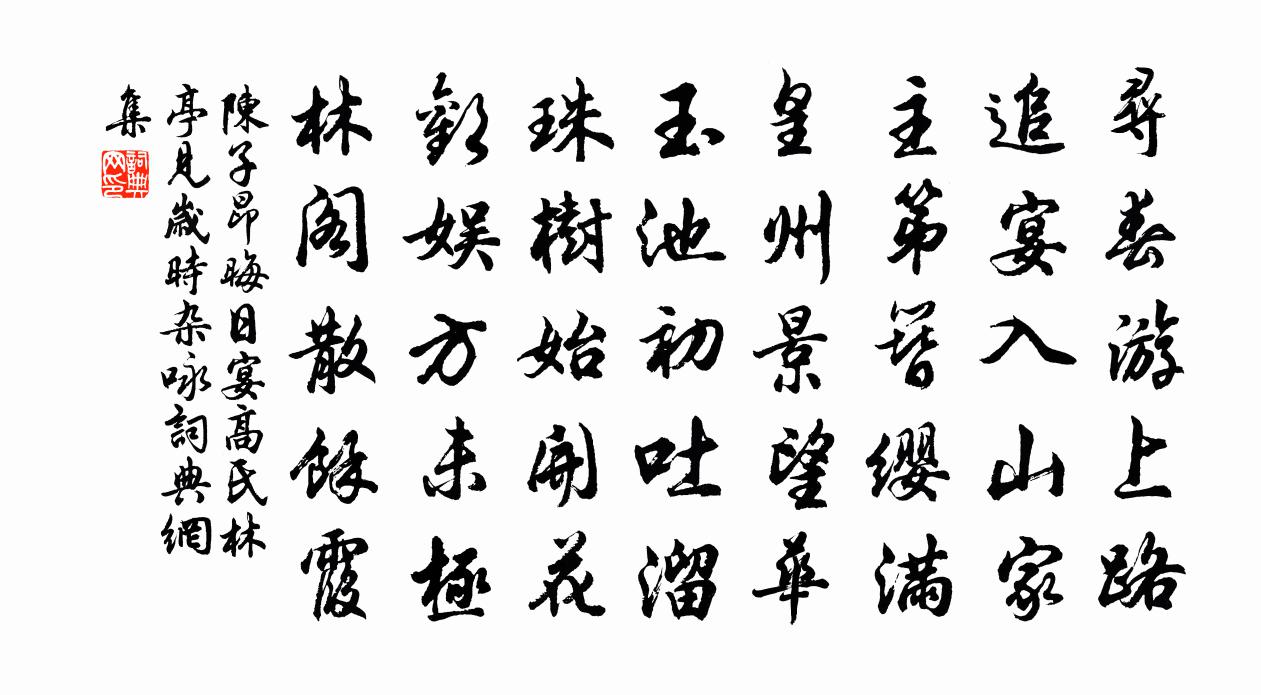 尋春游上路
追宴入山家
主第簪缨满
皇州景望華
玉池初吐溜
珠樹始開花
歡娛方未極
林阁散餘霞
陳子昂晦日宴高氏林
亭見歲時杂咏詞典網
集
詞典网印